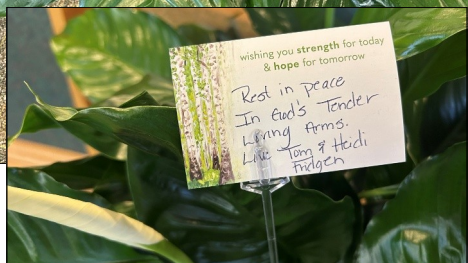 wishing you strength for today
& hope for tomorrow
Rest in peace
In God's Tender
Loving Arms.
Love Tom & Heidi
Fridgen